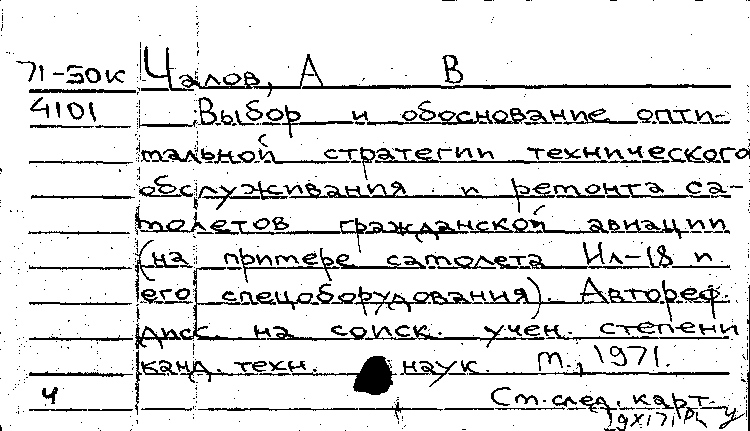 71-50к Чалов, А В
4101 Выбор и обоснование опти-
мальной стратегии технического
обслуживания и ремонта са-
молетов гражданской авиации
(на примере самолета Ил-18 и
его спецоборудования). Автореф.
дисс. на соиск. учен. степени
канд. техн. наук. М., 1971.
ч См. след. карт.